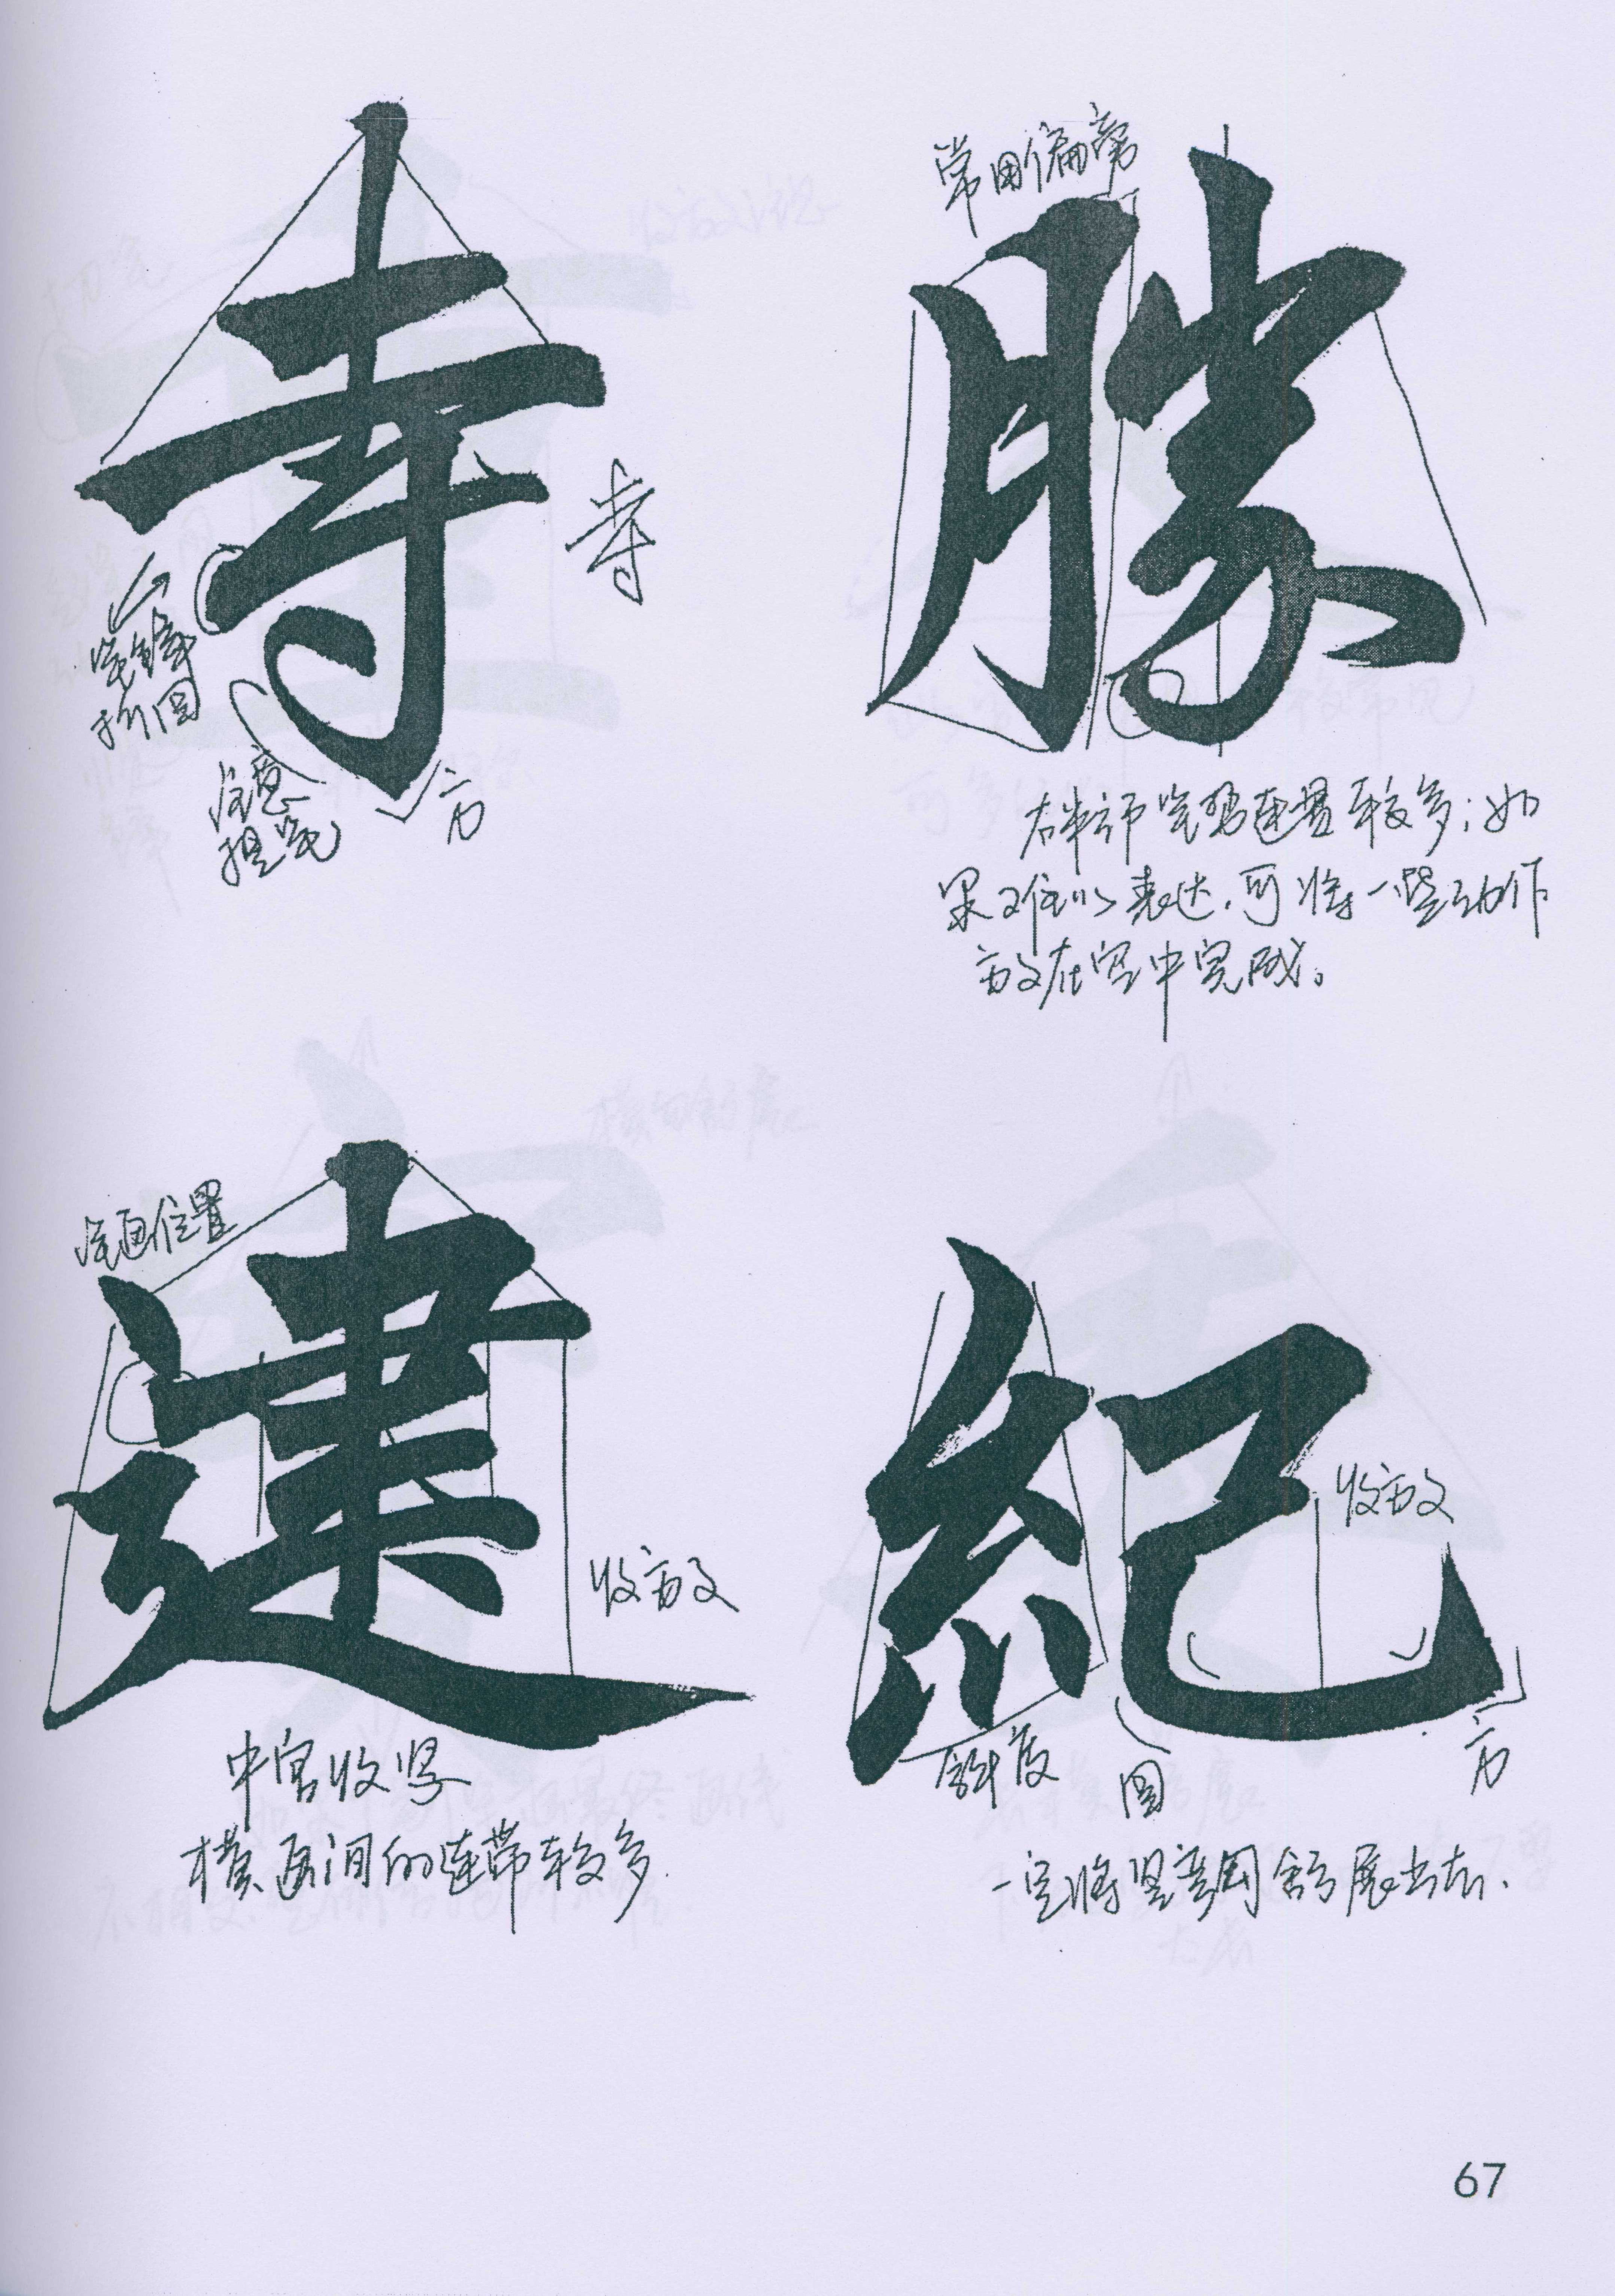 寺
寺
笔锋
折圆
注意
提笔
方
常用偏旁
勝
右半部笔势连贯较多；如
果难以表达，可将一些动作
放在空中完成。
笔画位置
建
收放
中宫收紧
横画间的连带较多.
紀
收放
斜度
圆
方
一定将竖弯钩舒展出去.
67